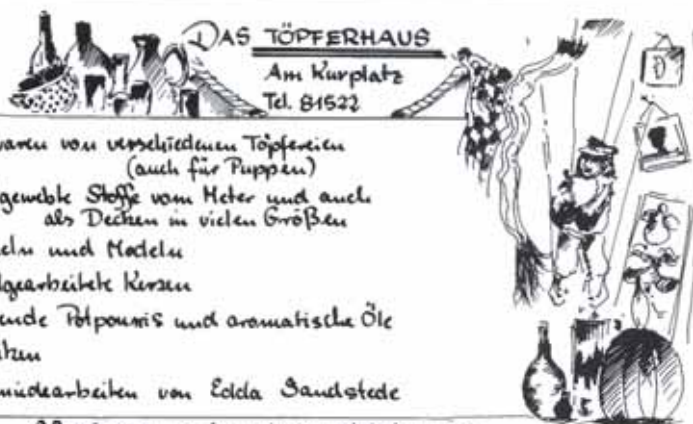 DAS TÖPFERHAUS
Am Kurplatz
Tel. 81522
waren von verschiedenen Töpfereien
(auch für Puppen)
gewebte Stoffe vom Meter und auch
als Decken in vielen Größen
und Modeln
gearbeitete Kerzen
Potpourris und aromatische Öle
von Edda Sandstede